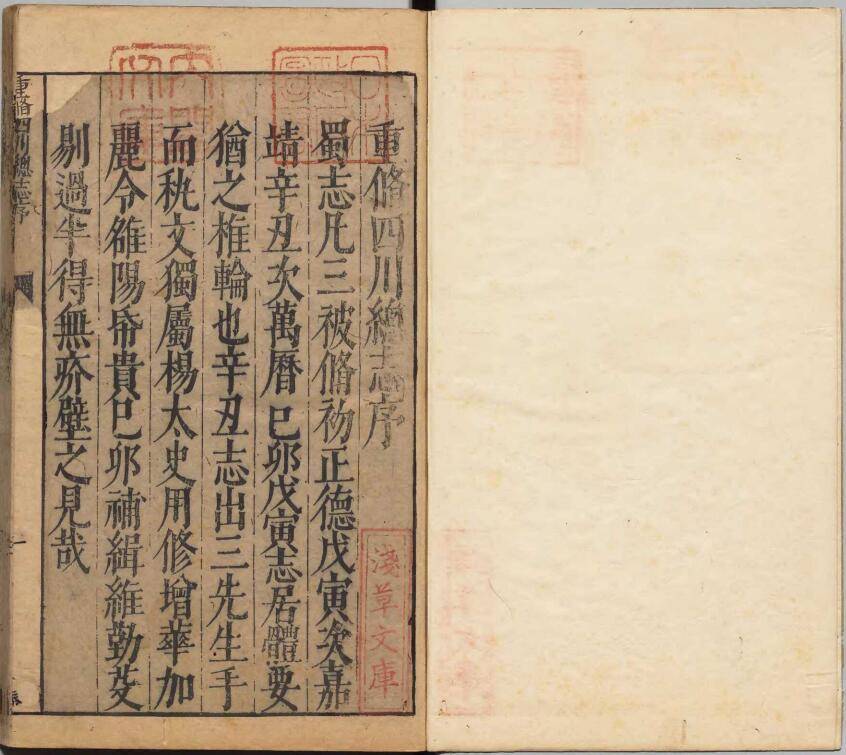 重脩四川總志序
蜀志凡三被脩初正德戊寅次嘉
靖辛丑次萬曆巳卯戊寅志居體要
猶之椎輪也辛丑志出三先生手
而秇文獨屬楊太史用修增華加
麗令雒陽帋貴巳卯補緝維勤芟
剔過半得無疥壁之見哉
重脩四川總志序
一
淺草文庫